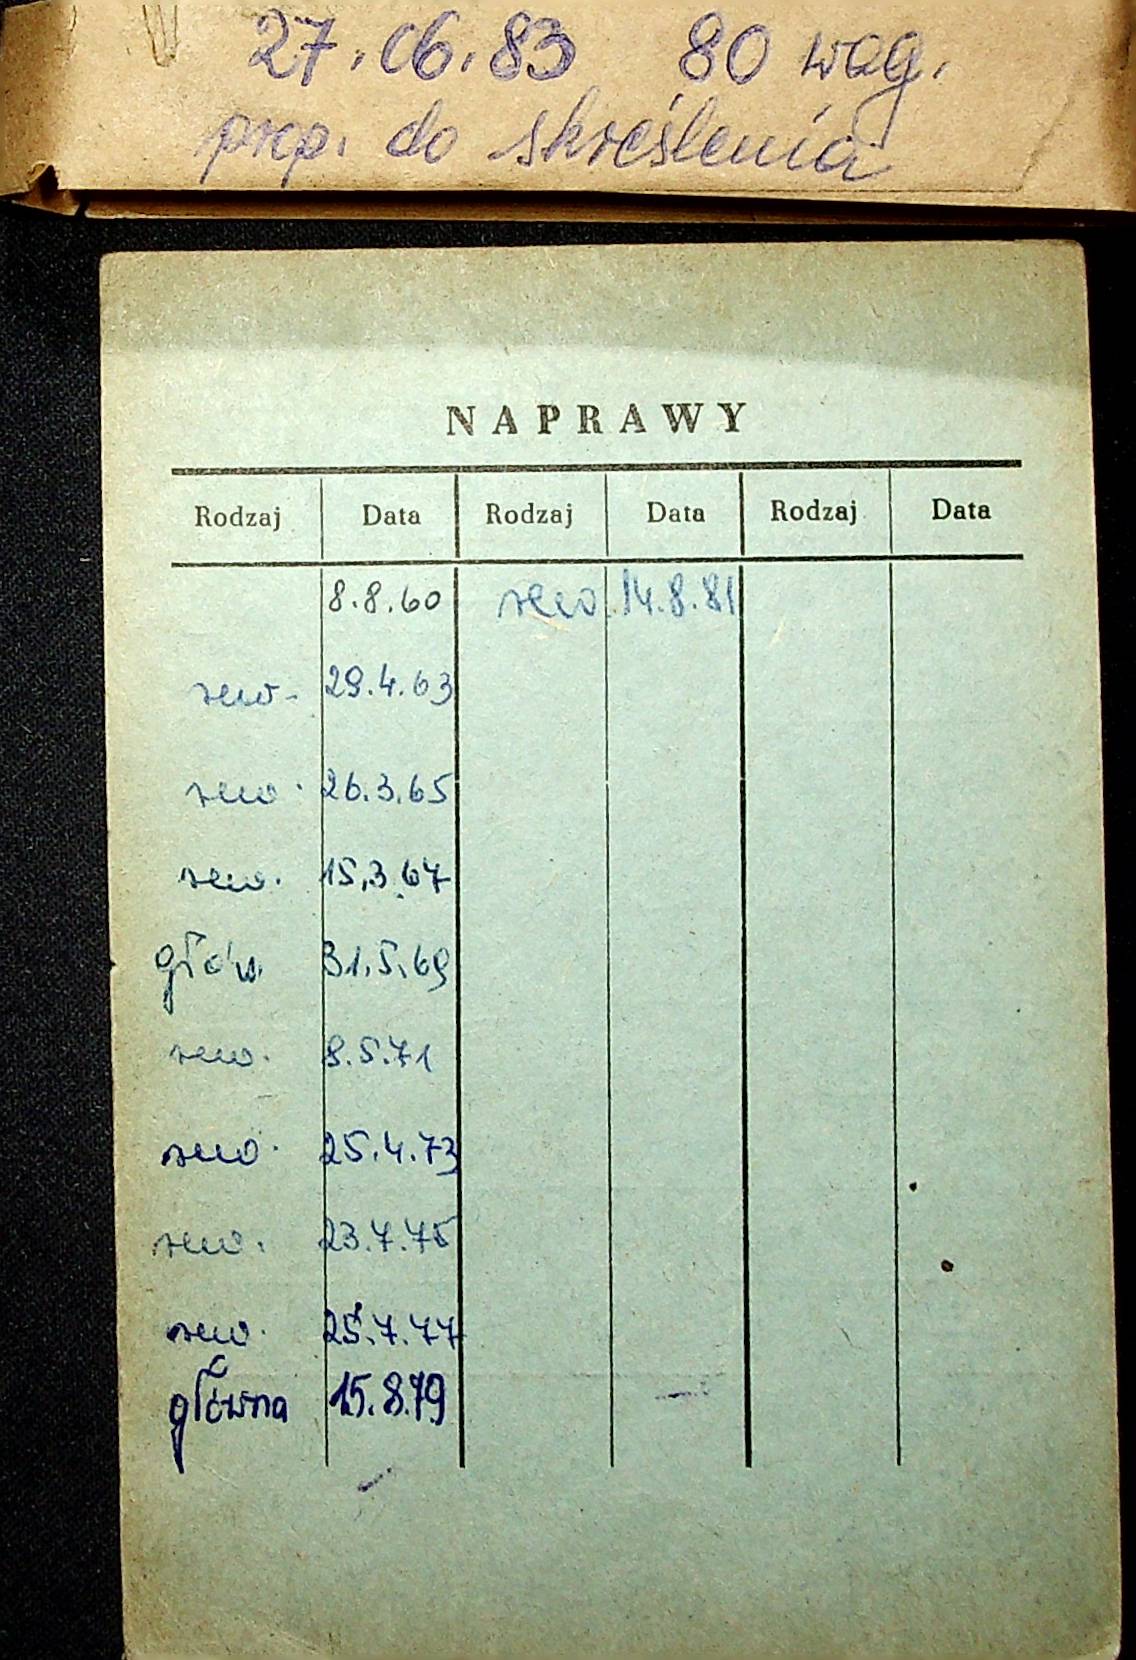 27.06.83 80 wag.
prop. do skreślenia
NAPRAWY
Rodzaj Data Rodzaj Data Rodzaj Data
8.8.60 rew. 14.8.81
rew. 29.4.63
rew. 26.3.65
rew. 15.3.67
głów. 31.5.69
rew. 8.5.71
rew. 25.4.73
rew. 23.7.75
rew. 25.7.77
główna 15.8.79